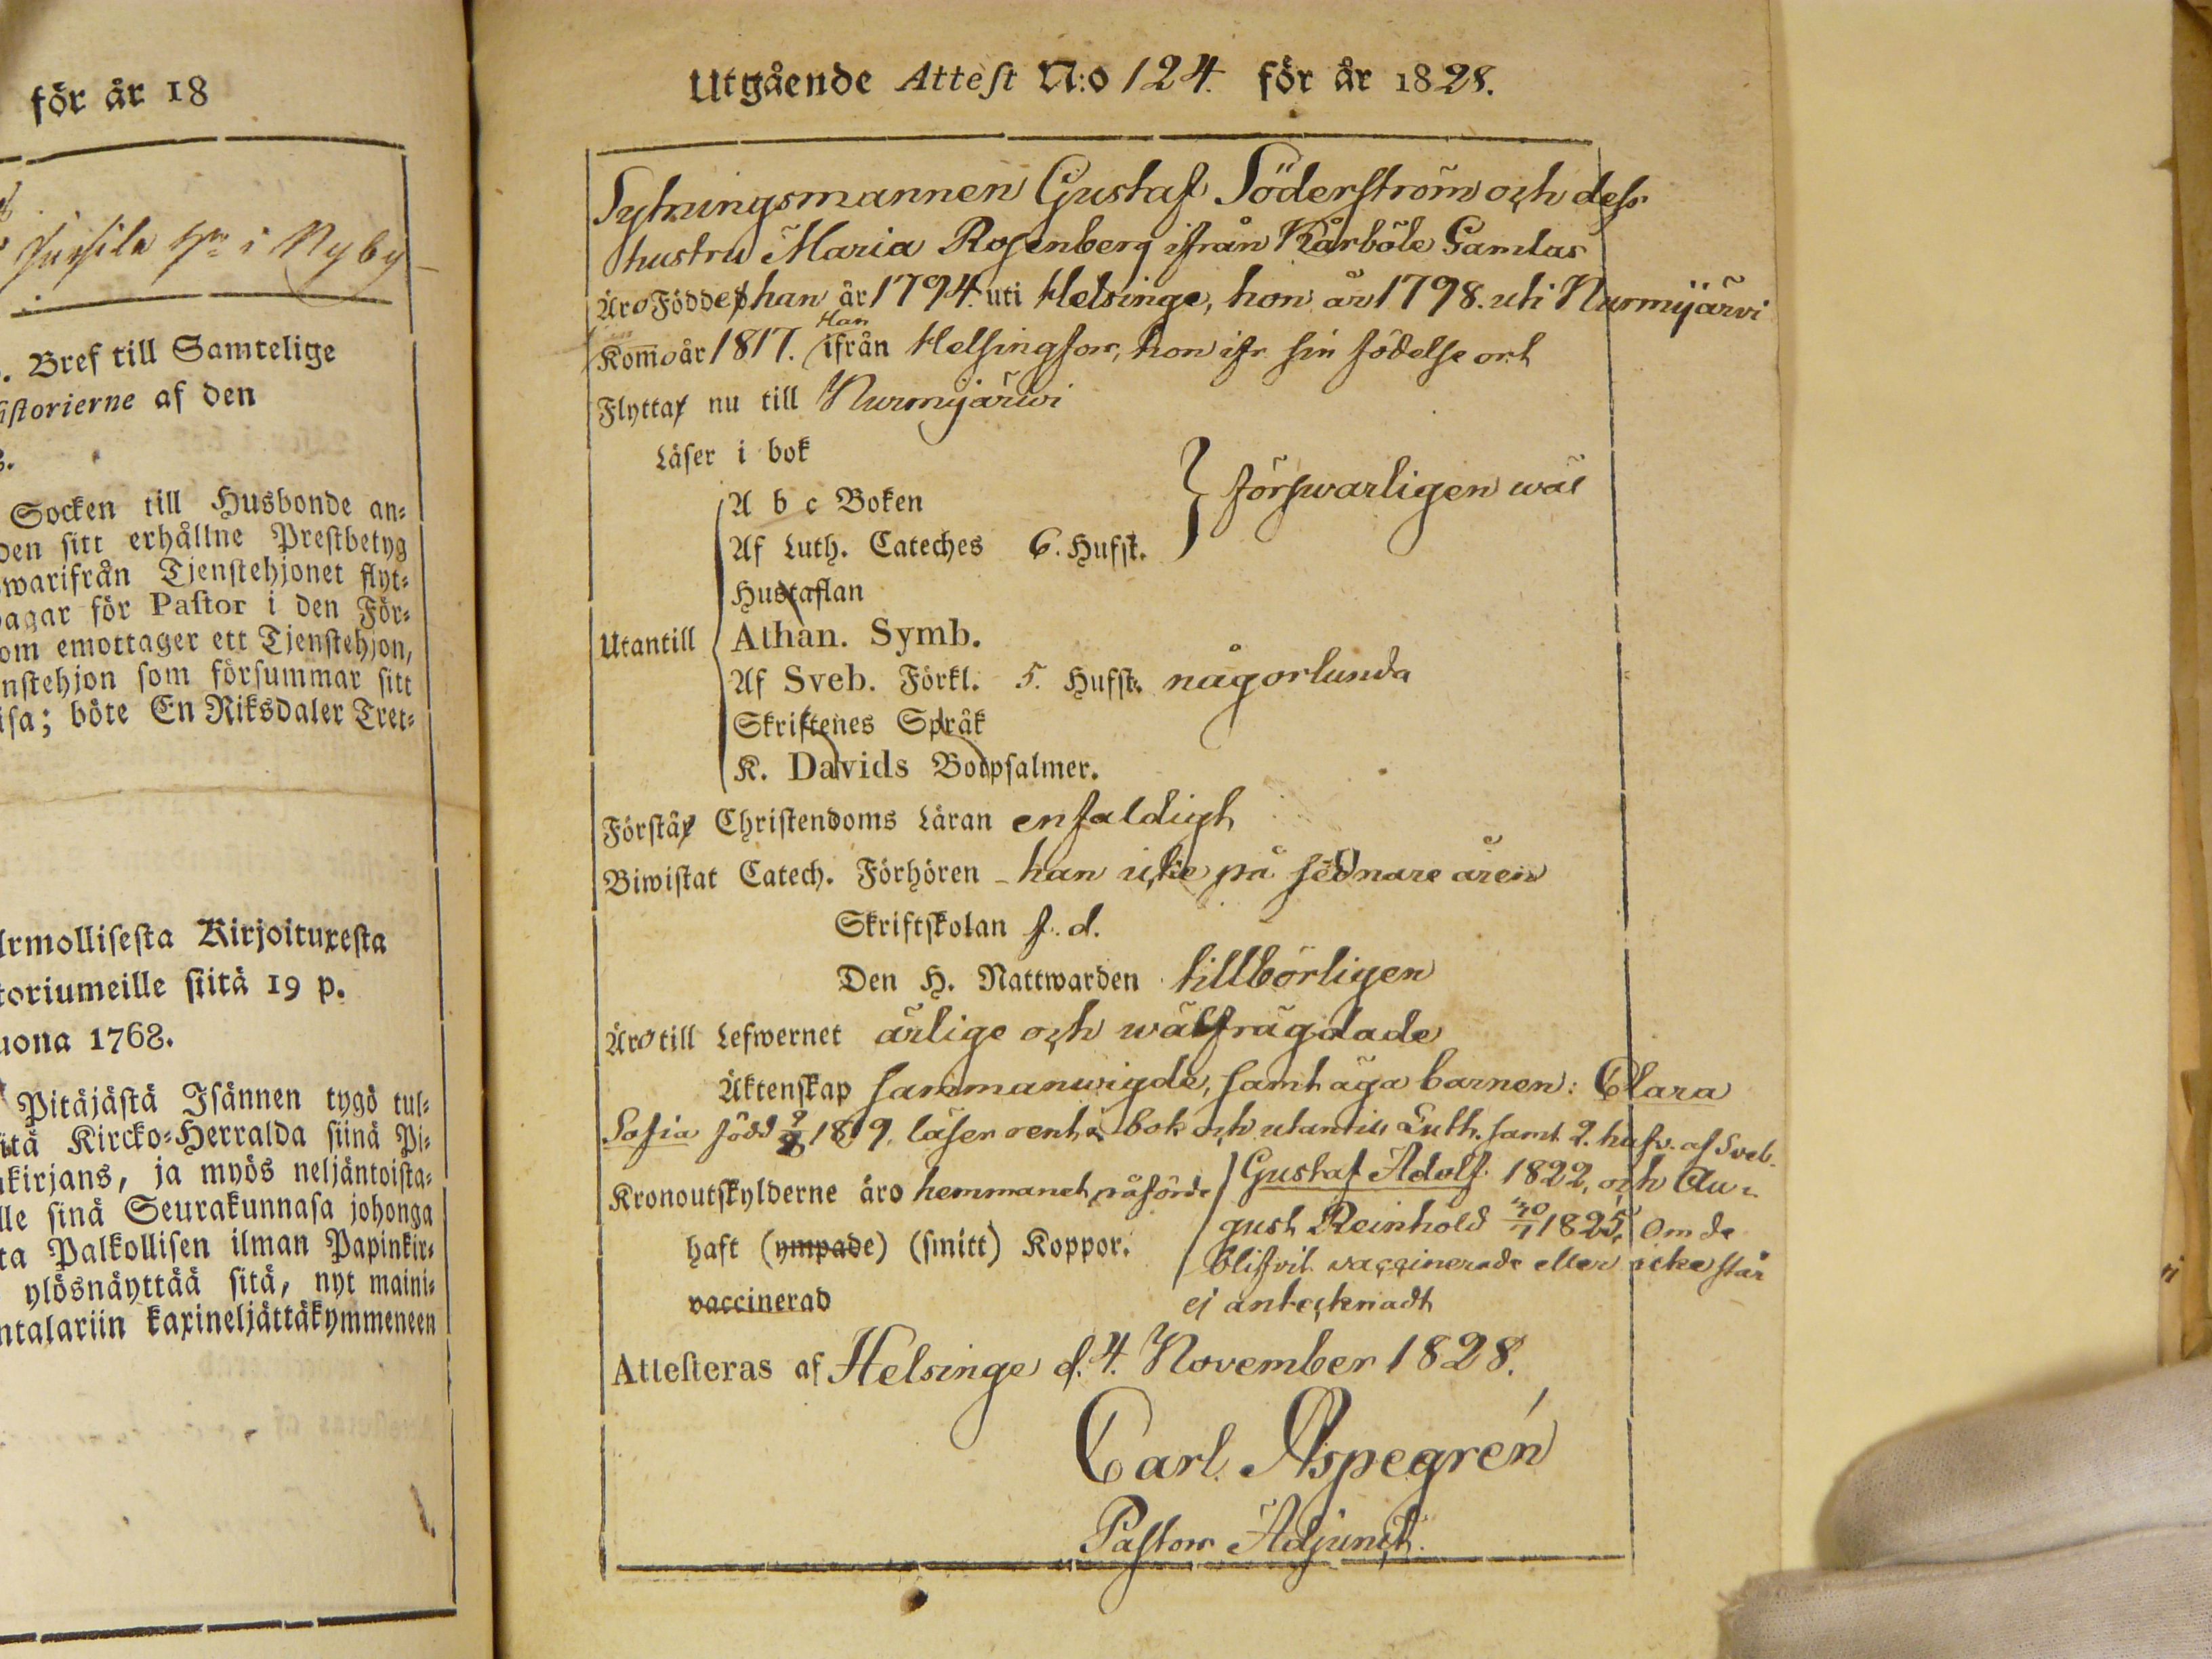 för år 18
i Nyby
. Bref till Samtelige
istorierne af den
Socken till Husbonde an-
den sitt erhållne Prestbetyg
warifrån Tjenstehjonet flyt-
agar för Pastor i den För-
om emottager ett Tjenstehjon,
nstehjon som försummar sitt
isa; böte En Riksdaler Tret-
Armollisesta Kirjoituxesta
toriumeille siitä 19 p.
uona 1768.
Pitäjästä Isännen tygö tul-
itä Kircko-Herralda siinä Pi-
kirjans, ja myös neljäntoista-
lle sinä Seurakunnasa johonga
ta Palkollisen ilman Papinkir-
ylösnäyttää sitä, nyt maini-
ntalariin kaxineljättäkymmeneen
Utgående Attest N:o 124. för år 1828.
Sytningsmannen Gustaf Söderström och dess
hustru Maria Rosenberg ifrån Kårböle Gamlas
Äro Födde han år 1794. uti Helsinge, hon år 1798. uti Nurmijärvi
Han
Komo år 1817. ifrån Helsingfors, hon ifr. sin födelse ort
Flytta nu till Nurmijärwi
Läser i bok
A b c Boken
förswarligen wäl
Af Luth. Cateches 6. Hufst.
Hustaflan
Utantill Athan. Symb.
Af Sveb. Förkl. 5. Hufst. någorlunda
Skriftenes Språk
K. Davids Botpsalmer.
Förstå Christendoms Läran enfaldigt
Biwistat Catech. Förhören - han icke på sednare åren
Skriftskolan f. d.
Den H. Nattwarden tillbörligen
Äro till Lefwernet ärlige och wälfrägdade
Äktenskap sammanwigde, samt äga barnen: Clara
Sofia född 9/8 1819, läser rent i bok och utantill Luth. samt 2. hufv. af Sveb.
Kronoutskylderne äro hemmanet påförde Gustaf Adolf 1822, och Au-
gust Reinhold 30/1 1825, Om de
haft (ympade) (smitt) Koppor.
blifvit vaccinerade eller icke står
vaccinerad
ej antecknadt
Attesteras af Helsinge d. 4. November 1828.
Carl Aspegrén
Pastors Adjunct.